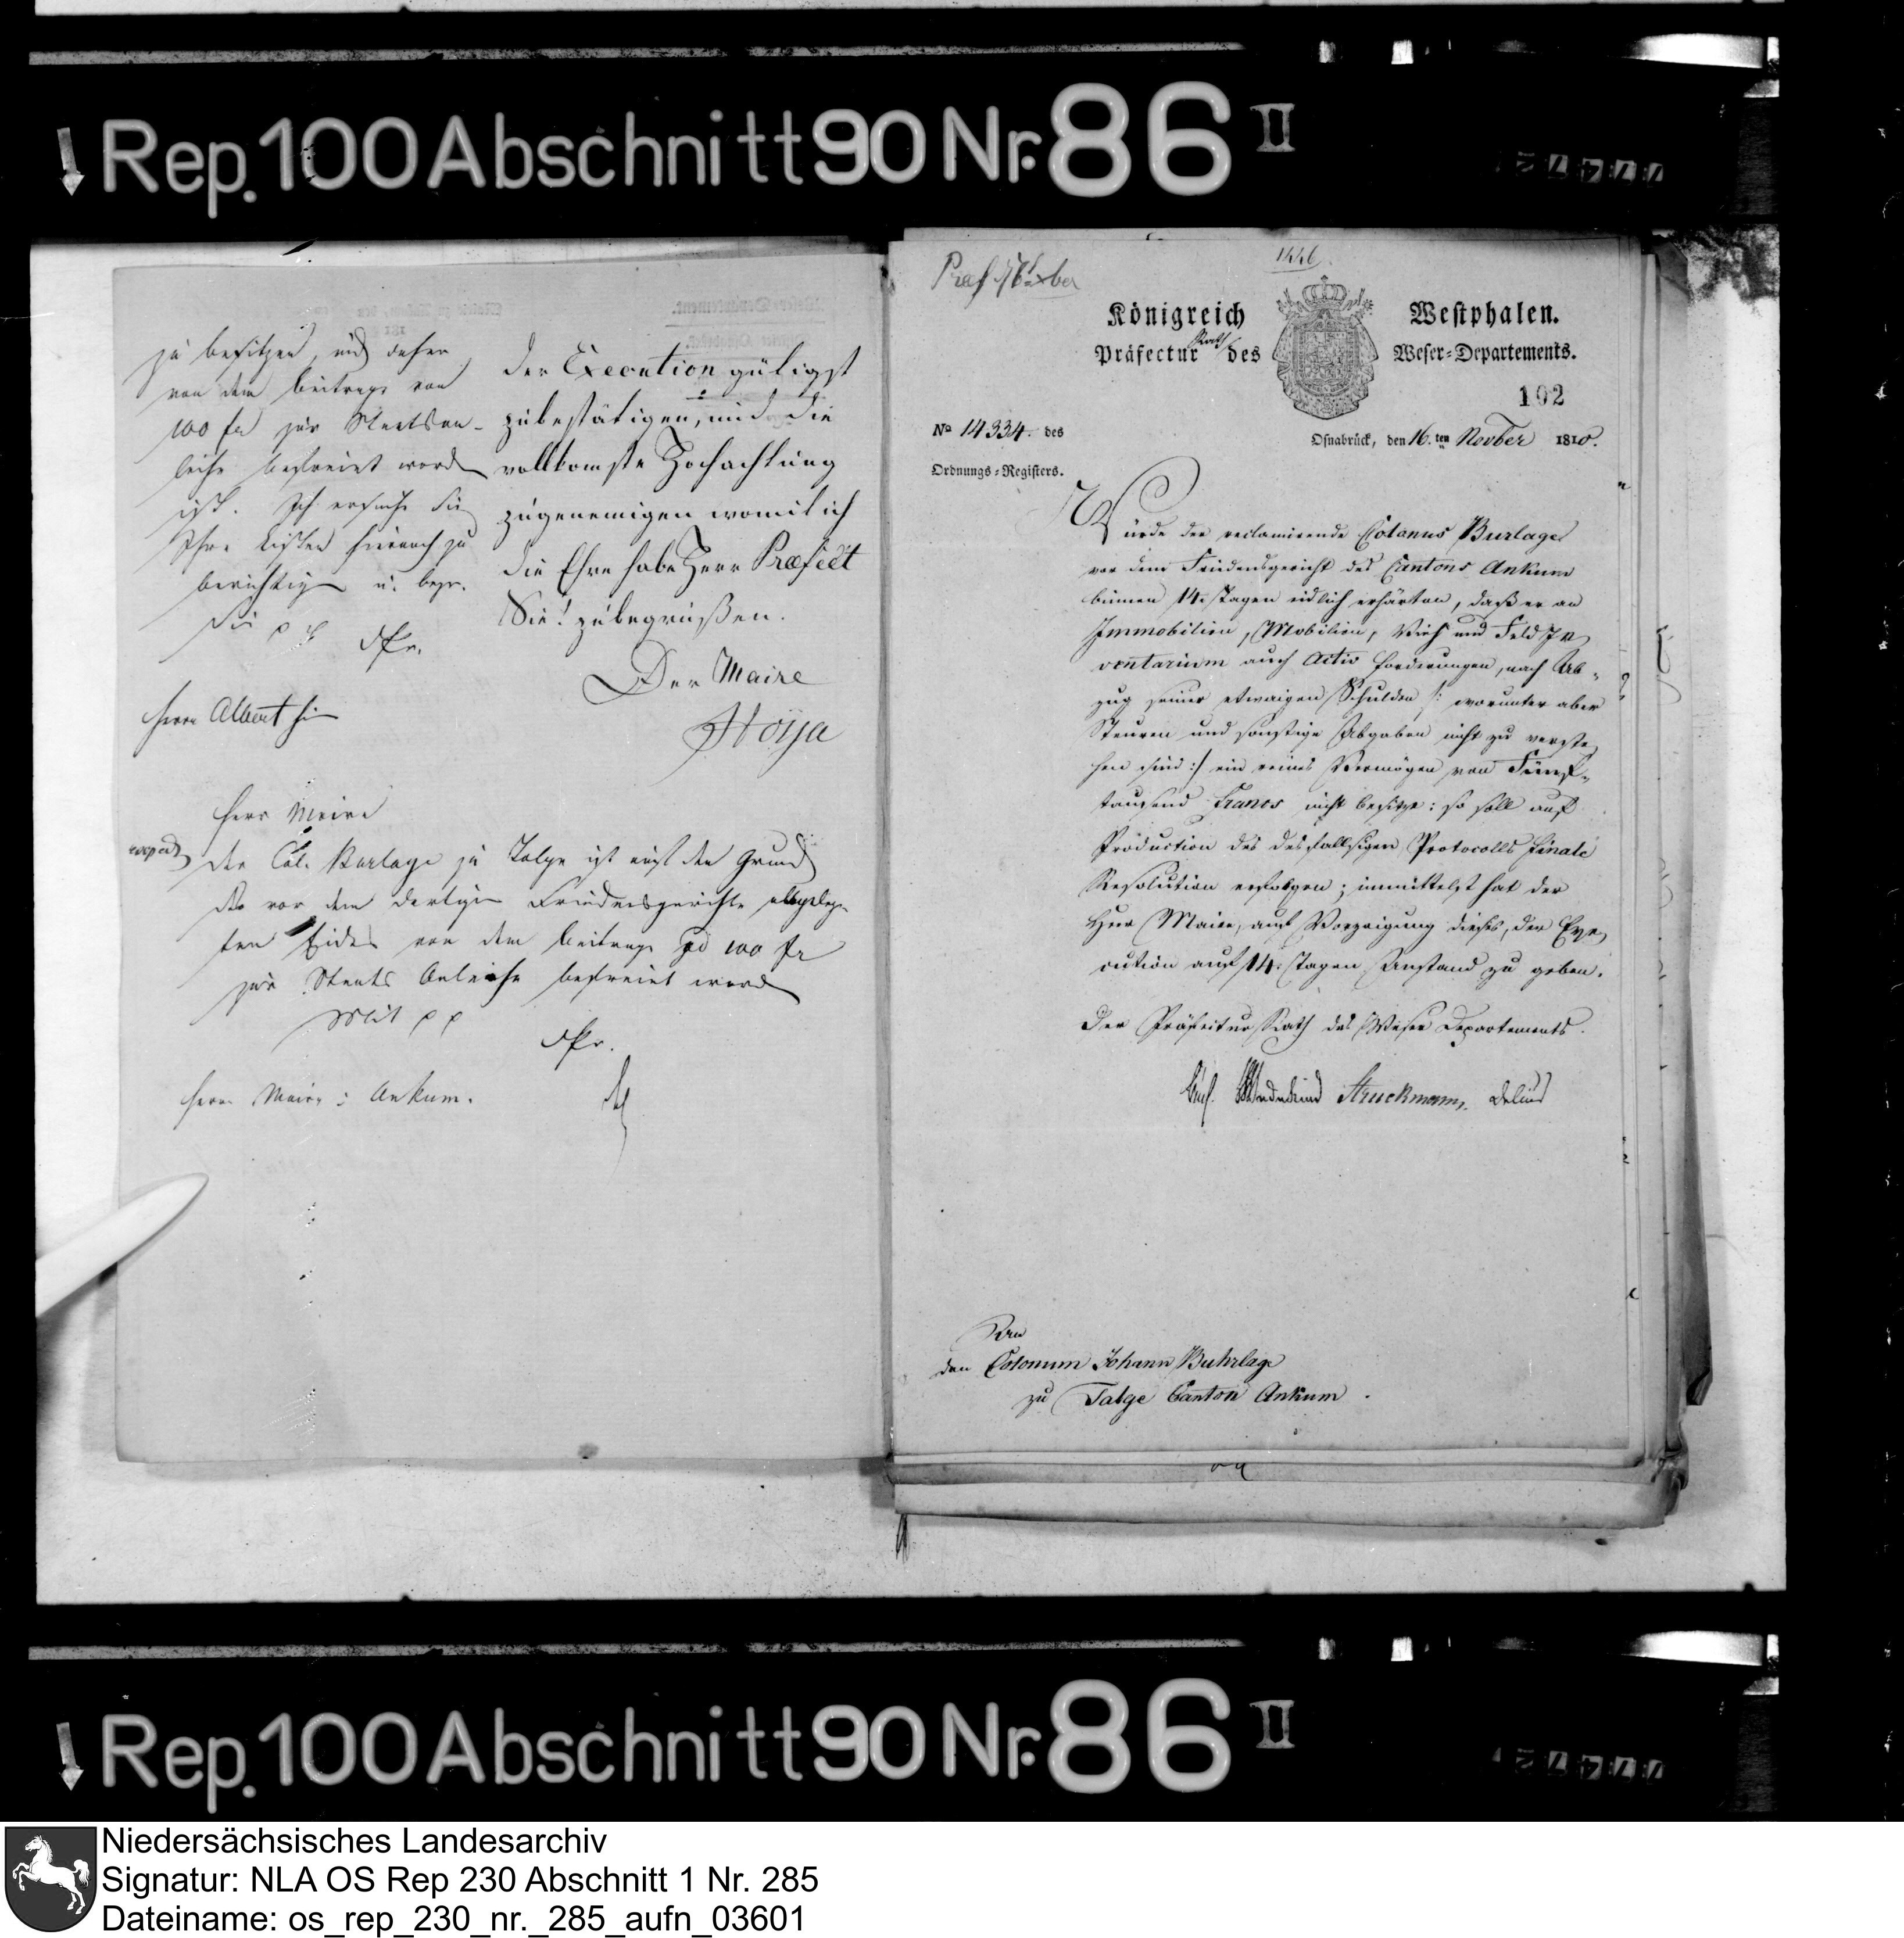 Rep. 100 Abschnitt 90 Nr. 86 II
zu besitzen, und daher
von dem Beitrage von
100 fr zur Staatsan-
leihe befreiet worden
ist. Ich ersuche Sie
Ihre Listen hiernach zu
berichtigen u.
Herrn Albert
der Execution gütigst
zubestätigen, und die
vollkomste Hochachtung
zugenemigen womit ich
die Ehre habe Herr Præfect
Sie! zubegrüßen.
Der Maire
Hoija
Herr Maire
Der Col. Burlage zu Talge ist auf den Grund
des vor dem dortigen Friedensgerichte abgeleg-
ten Eides von dem Beitrage zu 100 fr
zur Staats Anleihe befreiet worden
Mit p p
Herrn Maire : Ankum.
1446.
Königreich Westphalen.
Präfectur Rath des Weser-Departements.
102
No 14334. des
Ordnungs-Registers.
Osnabrück, den 16.ten Novber 1810.
Würde der reclamirende Colonus Burlage
vor dem Friedensgericht des Cantons Ankum
binnen 14. Tagen eidlich erhärten, daß er an
Immobilien, Mobilien, Vieh und Feld In
ventarium auch Activ Forderungen, nach Ab-
zug seiner etwaigen Schulden /: worunter aber
Steuren und sonstige Abgaben nicht zu verste
hen sind :/ ein reines Vermögen von Fünf-
tausend Francs nicht besitze: so soll auf
Production des desfallsigen Protocolls finale
Resolution erfolgen; inmittelst hat der
Herr Maire, auf Vorzeigung dieses, der Exe
cution auf 14. Tagen Anstand zu geben.
Der Präfectur Rath des Weser Departements.
Struckmann. Delius
An
den Colonum Johann Buhrlage
zu Talge Canton Ankum.
Rep. 100 Abschnitt 90 Nr. 86 II
Niedersächsisches Landesarchiv
Signatur: NLA OS Rep 230 Abschnitt 1 Nr. 285
Dateiname: os_rep_230_nr._285_aufn_03601